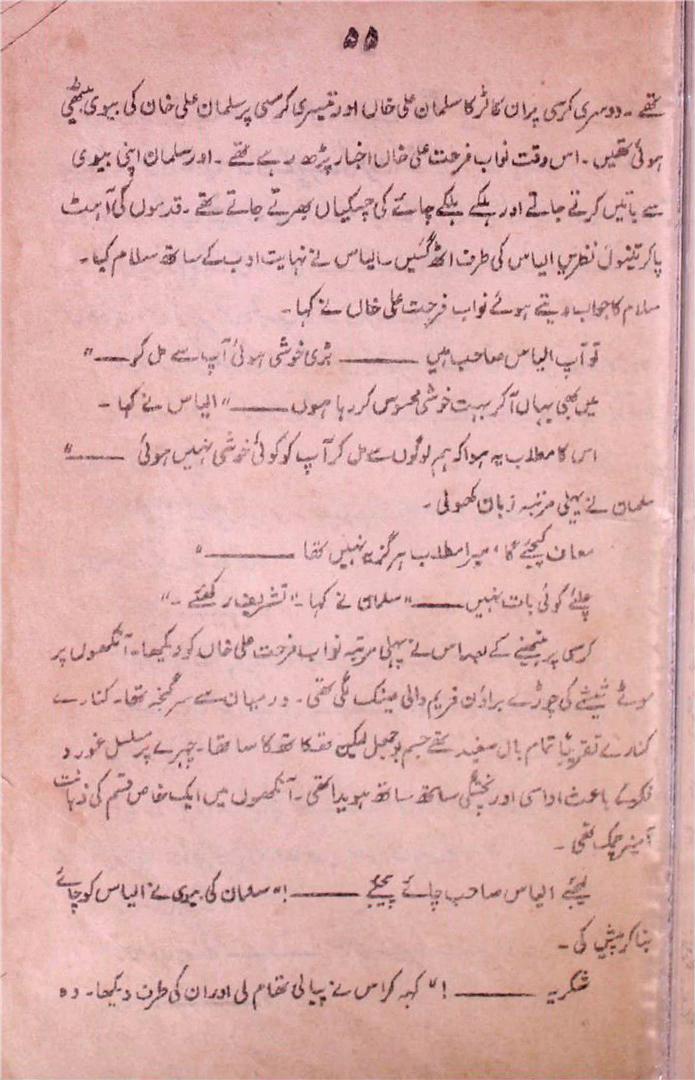 ۵۵
تھے ۔ دوسری کرسی پر ان کا لڑکا سلمان علی خاں اور تیسری کرسی پر سلمان علی خان کی بیوی بیٹھی
ہوئی تھیں ۔ اس وقت نواب فرحت علی خاں اخبار پڑھ رہے تھے ۔ اور سلمان اپنی بیوی
سے باتیں کرتے جاتے اور ہلکے ہلکے چائے کی چسکیاں بھرتے جاتے تھے ۔ قدموں کی آہٹ
پا کر تینوں نظریں الیاس کی طرف اٹھ گئیں ۔ الیاس نے نہایت ادب کے ساتھ سلام کیا ۔
سلام کا جواب دیتے ہوئے نواب فرحت علی خاں نے کہا ۔
تو آپ الیاس صاحب ہیں ــــــــ بڑی خوشی ہوئی آپ سے مل کر ــــ "
میں بھی یہاں آ کر بہت خوشی محسوس کر رہا ہوں ـــــ " الیاس نے کہا ۔
اس کا مطلب یہ ہوا کہ ہم لوگوں سے مل کر آپ کو کوئی خوشی نہیں ہوئی ـــــ "
سلمان نے پہلی مرتبہ زبان کھولی ۔
معاف کیجئے گا ، میرا مطلب ہرگز یہ نہیں تھا ــــــــ "
چلئے کوئی بات نہیں ـــــ " سلمان نے کہا ۔ " تشریف رکھئے ۔ "
کرسی پر بیٹھنے کے بعد اس نے پہلی مرتبہ نواب فرحت علی خاں کو دیکھا ۔ آنکھوں پر
موٹے شیشے کی چوڑے براؤن فریم والی عینک لگی تھی ۔ درمیان سے سر گنجہ تھا ۔ کنارے
کنارے تقریباً تمام بال سفید تھے جسم بوجھل لیکن تھکا تھکا سا تھا ۔ چہرے پر مسلسل غور و
فکر کے باعث اداسی اور پختگی ساتھ ساتھ ہویدا تھی ۔ آنکھوں میں ایک خاص قسم کی ذہانت
آمیز چمک تھی ۔
لیجئے الیاس صاحب چائے پیجئے ــــــــ !" سلمان کی بیوی نے الیاس کو چائے
بنا کر پیش کی ۔
شکریہ ــــــــ !" کہہ کر اس نے پیالی تھام لی اور ان کی طرف دیکھا ۔ وہ